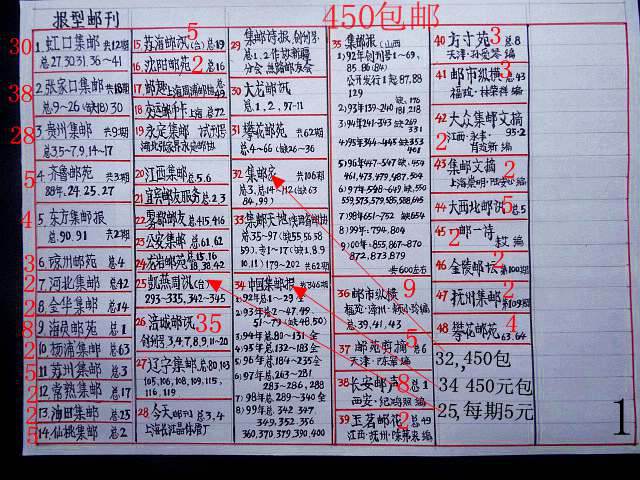 报型邮刊
450包邮
30
1. 虹口集邮 共12期
总27,30 31.36~41
38
2 张家口集邮 共18期
总9~26(缺18) 30
28
3 贵州集邮 共9期
总35~7,9,14~17
5
4 齐鲁邮苑 总3
88年,24.25.27
4
5. 东方集邮报
总90.91 共2期
3
6 琼州邮苑 总4
2
7 河北集邮 总42
8
8 金华集邮 总14
9 海员邮苑 总1
2
10 杨浦集邮 总63
3
11 苏州集邮 总3
2
12 常熟集邮 总17
2
13 海田集邮 总25
5
14 仙桃集邮 总2
5
15 苏海邮讯(台)总19
16 沈阳邮苑 2 总16
17 邮趣
18 交运邮币卡 上海 总72
19 永定集邮 试刊号
20 江西集邮 总5.6
21 宜宾邮友服务 总2.3
22 雾都邮友 总415,416
23 公安集邮 总61.62
24 龙岩邮苑 总15.16
18.38.42
25 凯燕周讯(台)
293~335, 342~345
26 涪城邮讯 35
创刊号,3,4,7,8,9,11~20
27 辽宁集邮 总80 103
105,106,108,109,115,
116,119
28 今天(邮刊) 总3,4
29 集邮诗报.创刊号
总1.2
30 大龙邮讯
总1,2,97-11
31 攀花邮苑 共62期
总4~66(缺26~36
32 集邮家 共106期
总3,总14~112(缺63
84,99)
33 集邮天地
总35~97(缺55 56 58
59). 专1~17(缺1,8,9
10.11) 179~202 共62期
34 中国集邮报 共346期
1)92年总1~29全
2)93年总2~47.49
51~79(缺48.50)
3)94年总80~131全
4)95年总132~183全
5)96年总184~235全
6)97年总263~281
283~286,288
7)98年总289~340全
8)99年总342 347
349,352.356
360,370,379,390,400
35 集邮报(山西
1)92年创刊号1~69,
85.86(84)
公开发行1至87,88
129
2)93年139~240 缺,176
181,218
3)94年241~343 缺269
331
4)95年344~445 缺353
401
5)96年447~547 缺,454
461,473,479,487,504
6)97年548~649 缺,550
559,573,579,585,588,645
7)98年651~752 缺654
8)99年:794,804
9)00年:855,867~870
872,873,879
共600左右
36 邮市纵横 9
总39,41,43
37 邮苑剪摘 5 总6
天津·
38 长安邮声 8 总1
39 玉茗邮花 2 总49
40 方寸苑 3 总8
天津·孙爱琴 编
41 邮市纵横 3 总43
福琉·林荣祥 编
42 大众集邮文摘
2 95.2
43 集邮文摘 2
44 大西北邮讯 5 总5
45 邮一诗
2
46 金陵邮坛 2 第100期
47 抚州集邮 2 第109期
48 攀花邮苑 4 63.64
32,,450包
34 450元包
25,每期5元
1